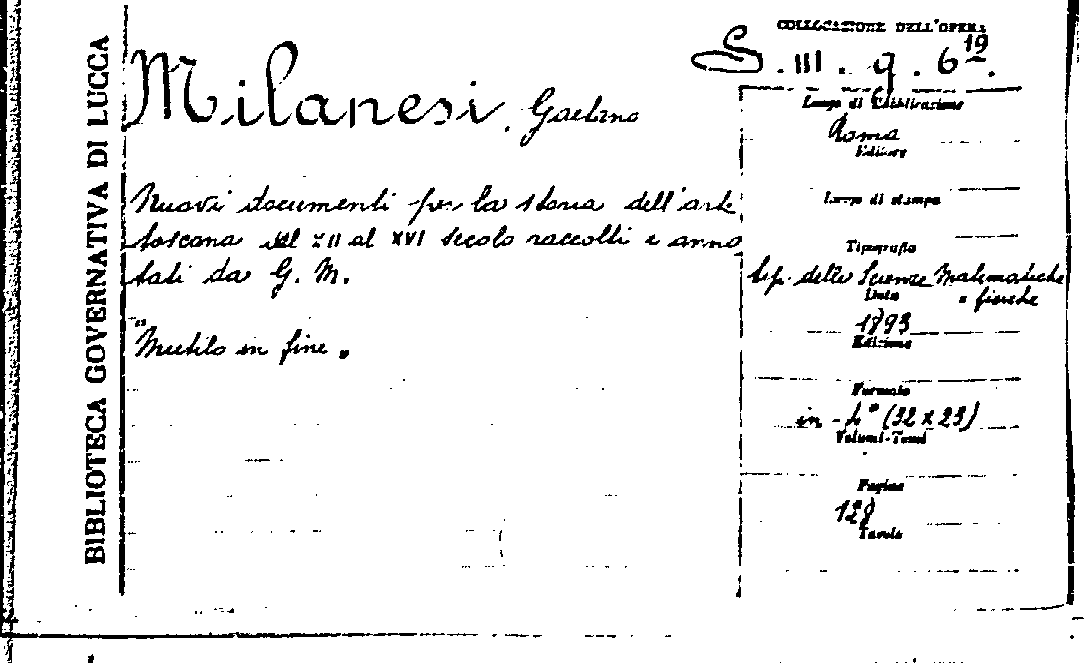 BIBLIOTECA GOVERNATIVA DI LUCCA
Milanesi, Gaetano
Nuovi documenti per la storia dell'arte
toscana dal XII al XVI secolo raccolti e anno
tati da G. M.
"Mutilo in fine"
COLLOCAZIONE DELL'OPERA
S. III. 9. 6 19.
Luogo di Pubblicazione
Roma
Editore
Luogo di stampa
Tipografia
tip. delle Scienze Matematiche
e fisiche
Data
1893
Edizione
Formato
in-4° (32 x 23)
Volumi-Tomi
Pagine
128
Tavole